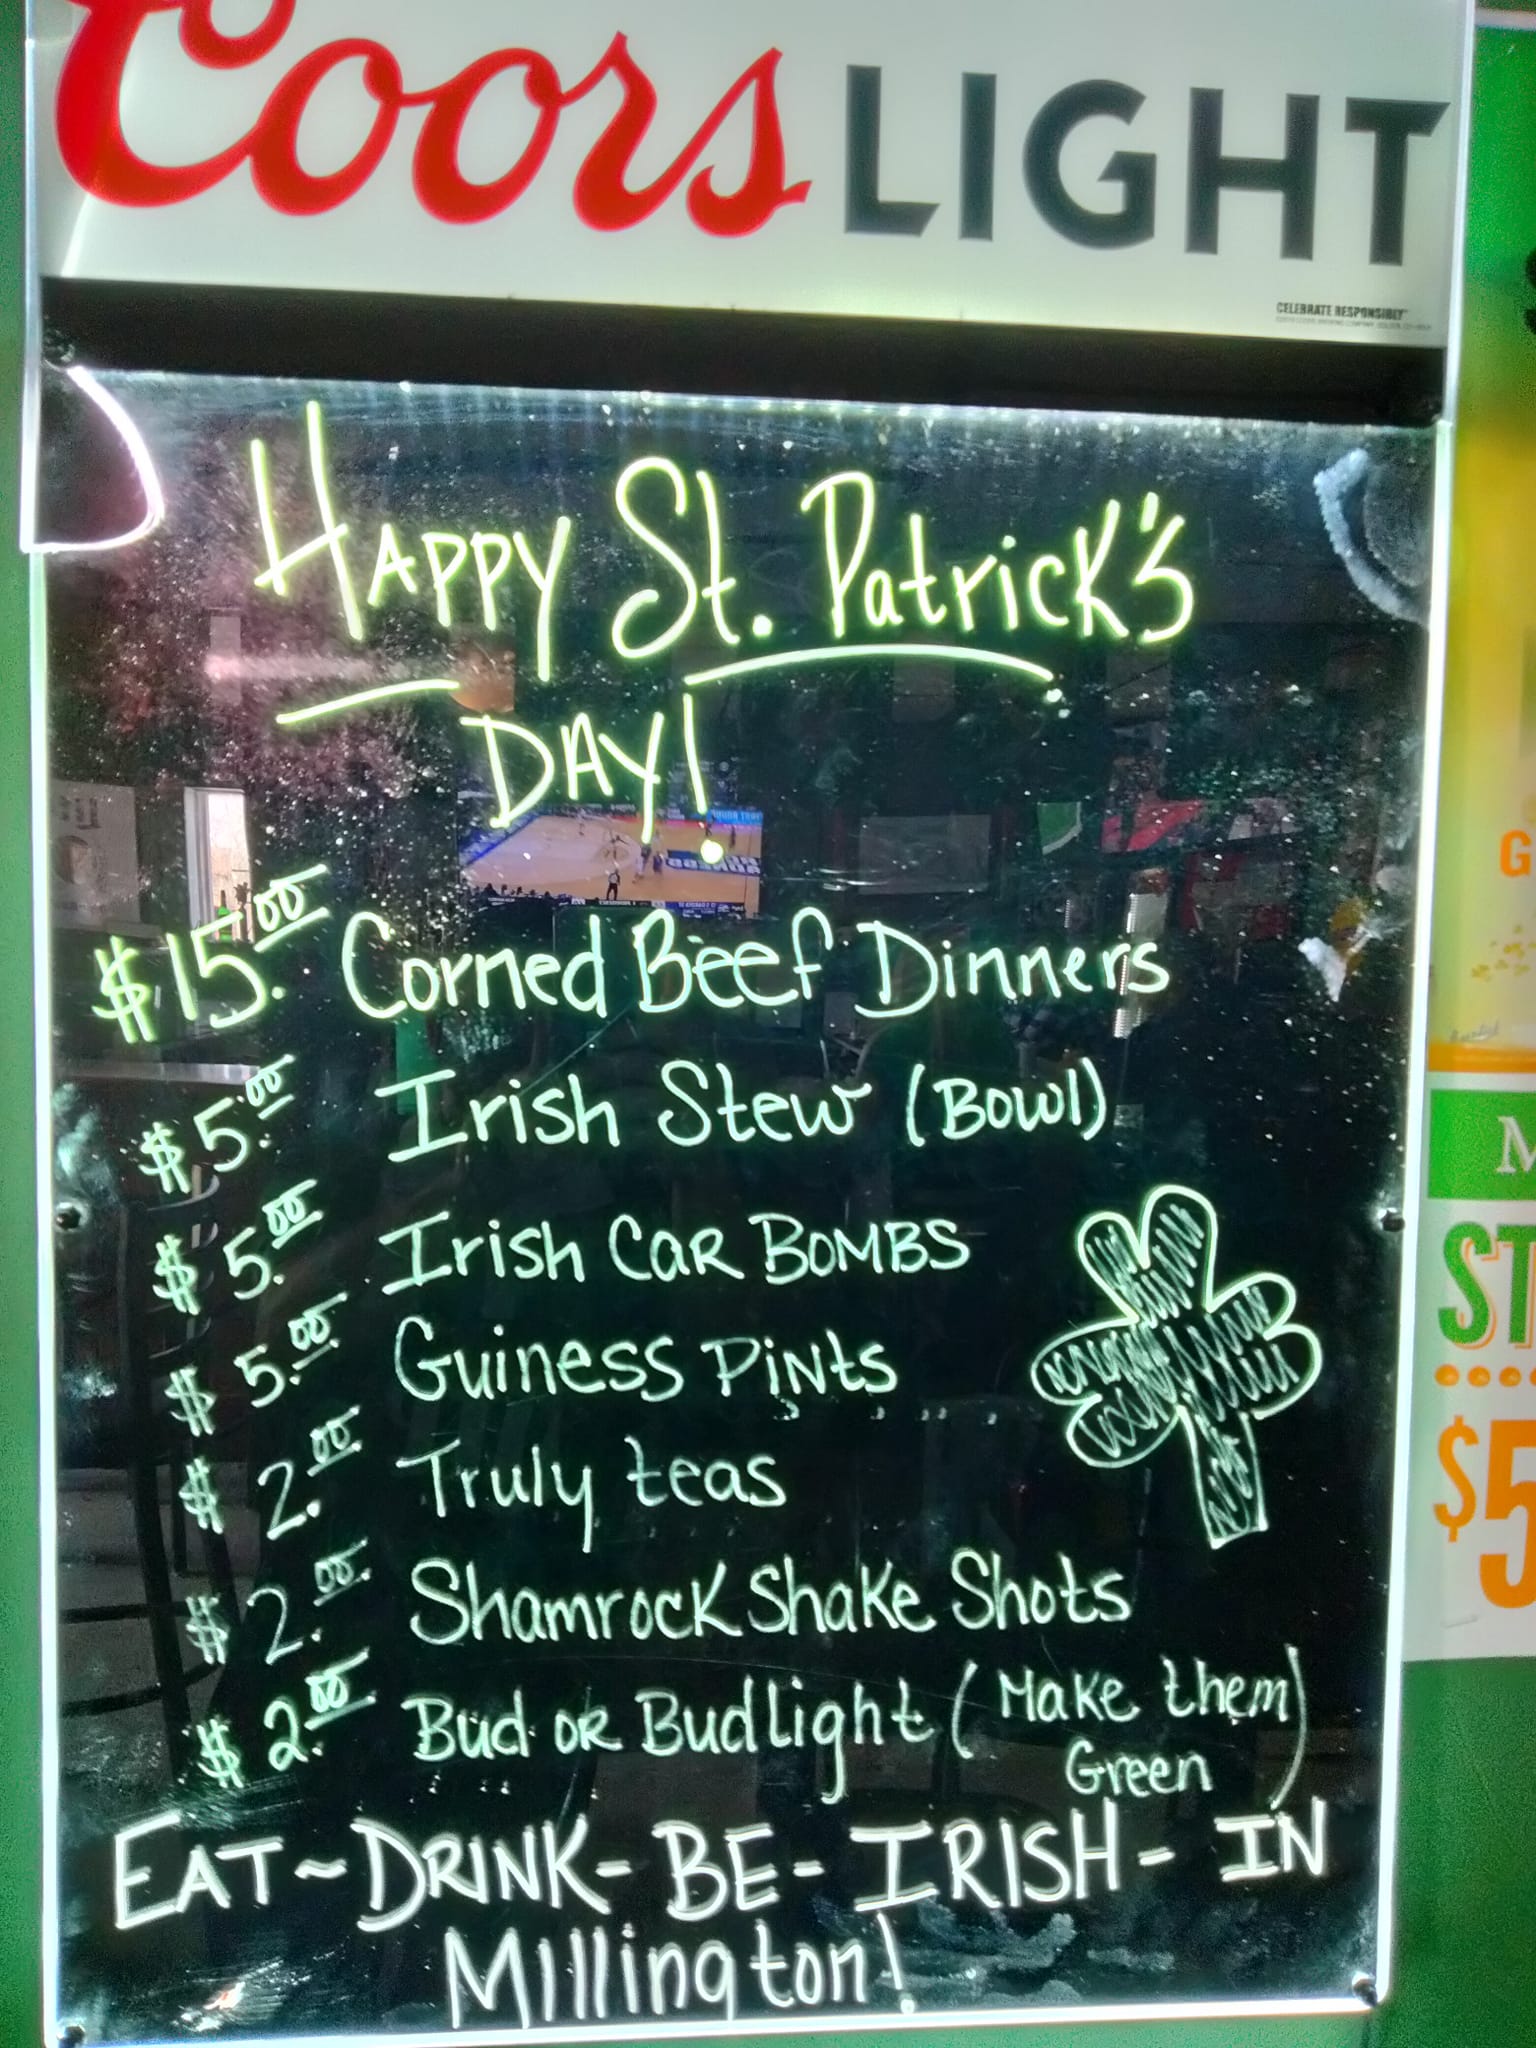 Coors LIGHT
CELEBRATE RESPONSIBLY
HAPPY St. Patrick's
DAY!
$15.00 Corned Beef Dinners
$5.00 Irish Stew (Bowl)
$5.00 Irish CaR BOMBS
$5.00 Guiness PiNts
$2.00 Truly teas
$2.00 Shamrock Shake Shots
$2.00 Bud OR Budlight (Make them
Green)
EAT~DRINK-BE-IRISH-IN
Millington!
G
M
ST
$5